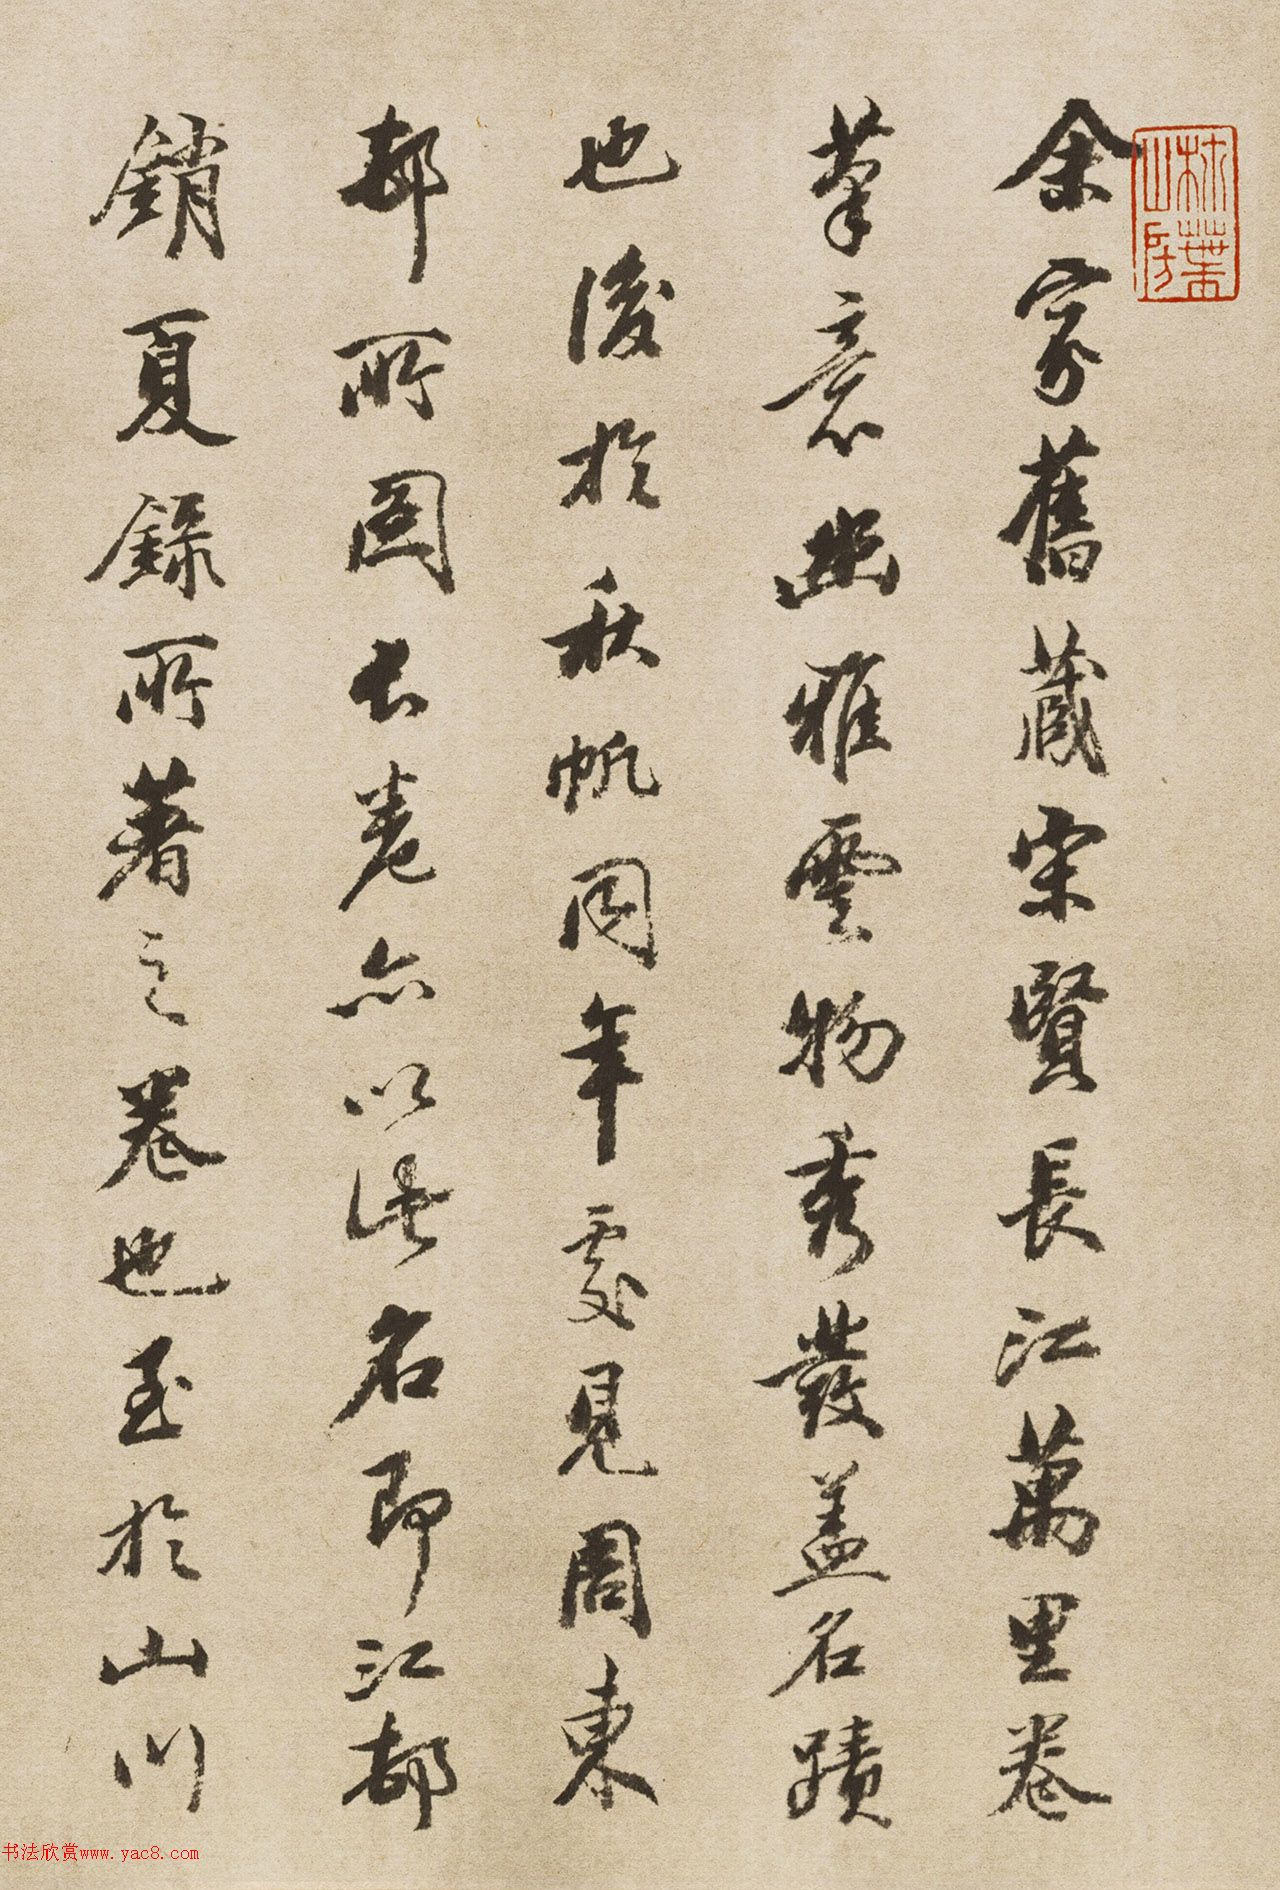 余家舊藏宋賢長江萬里卷
筆意幽雅雲物秀發蓋名蹟
也後於秋帆同年處見周東
邨所圖長卷亦以此名即江都
銷夏錄所著之卷也至於山川
葉山房
书法欣赏www.yac8.com